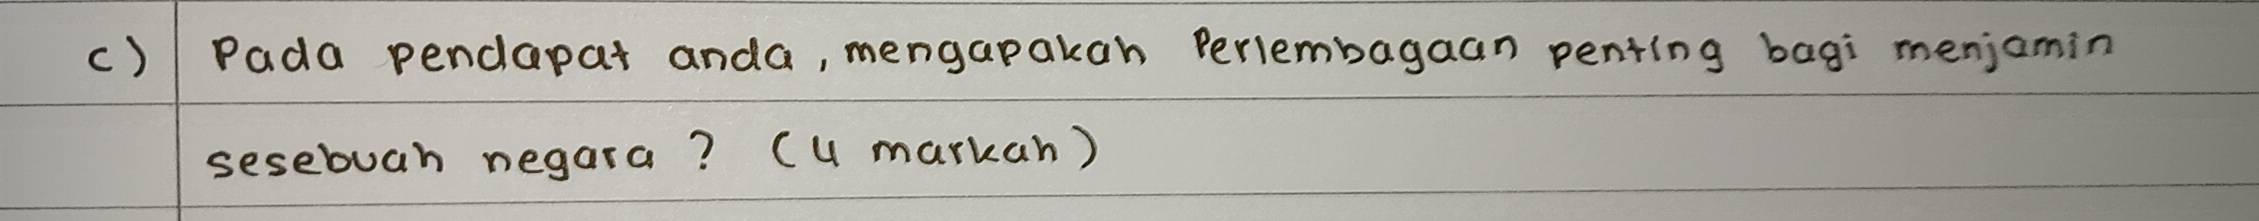 c) Pada pendapat anda, mengapakah Perlembagaan penting bagi menjamin
sesebuah negara? (4 markah)